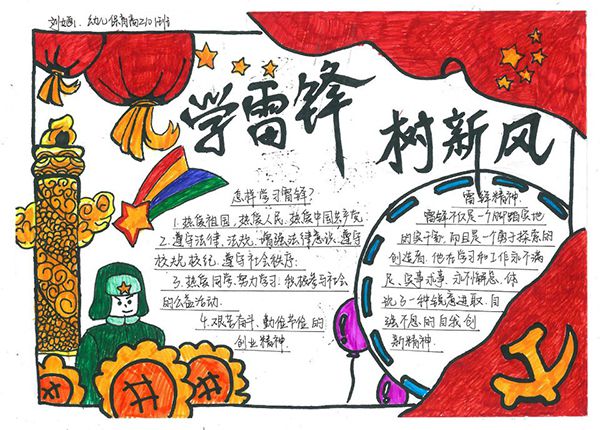 幼儿保育高210班
学雷锋
树新风
怎样学习雷锋?
1.热爱祖国,热爱人民,热爱中国共产党.
2.遵守法律、法规,增强法律意识、遵守
校规、校纪,遵守社会秩序;
3.热爱同学,努力学习,积极参与社会
的公益活动.
4.艰苦奋斗,勤俭节俭的
创业精神
雷锋精神.
雷锋不仅是一个脚踏实地
的实干家,而且是一个勇于探索的
创造者,他在学习和工作永不满
足、求事,永不懈怠,体
现了一种锐意进取、自
强不息的自我创
新精神.